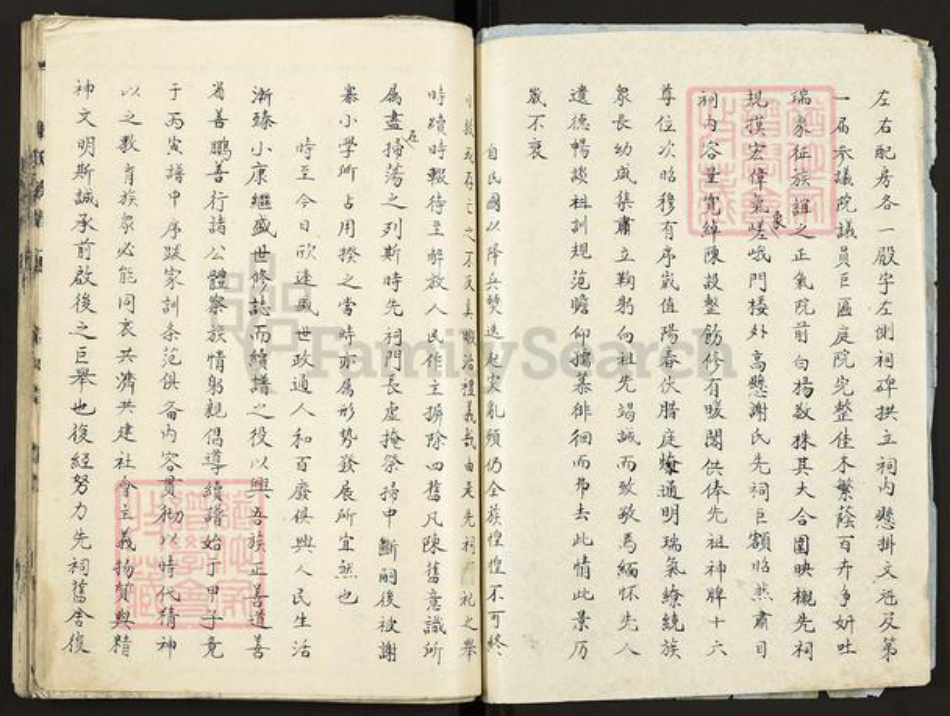 左右配房各一殿宇左側祠碑拱立祠内懸掛文冠及第
一届參議院議員巨匾庭院完整佳木繁蔭百卉争妍吐
瑞象征族誼之正氣院前白楊数株其大合圍映襯先祠
規摸宏偉氣象嵯峨門楼外高懸謝氏先祠巨額昭然肅目
祠内容量寬綽陳設整飭修有暖閣供俸先祖神牌十六
尊位次昭穆有序嵗值陽春伏腊庭燎通明瑞氣繚繞族
衆長幼咸集肅立鞠躬向祖先竭誠而致敬焉緬怀先人
遺德暢談祖訓規范瞻仰孺慕徘徊而弗去此情此景历
嵗不衰
自民國以降兵燹迭起灾亂頻仍全族惶惶不可終
之不及其暇治禮義哉由是先祠礼之舉
時續時輟待至解放人民作主摒除四舊凡陳舊意識所
属盡在掃荡之列斯時先祠門長虚掩祭掃中斷嗣後被謝
寨小学所占用揆之當時亦属形势發展所宜然也
時至今日欣逢盛世政通人和百廢俱興人民生活
漸臻小康繼盛世修誌而續譜之役以興吾族正善道善
省善鵬善行諸公體察族情躬親倡導續譜始于甲子竟
于丙寅譜中序跋家訓条范俱备内容貫彻以時代精神
以之教育族衆必能同衷共濟共建社会主義物質與精
神文明斯誠承前啟後之巨舉也復經努力先祠舊舍復
FamilySearch